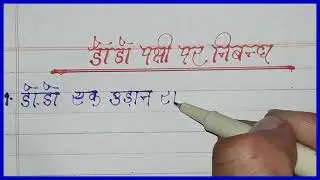 डॉडॉ पक्षी पर निबन्ध
1. डॉडॉ एक उड़ान र